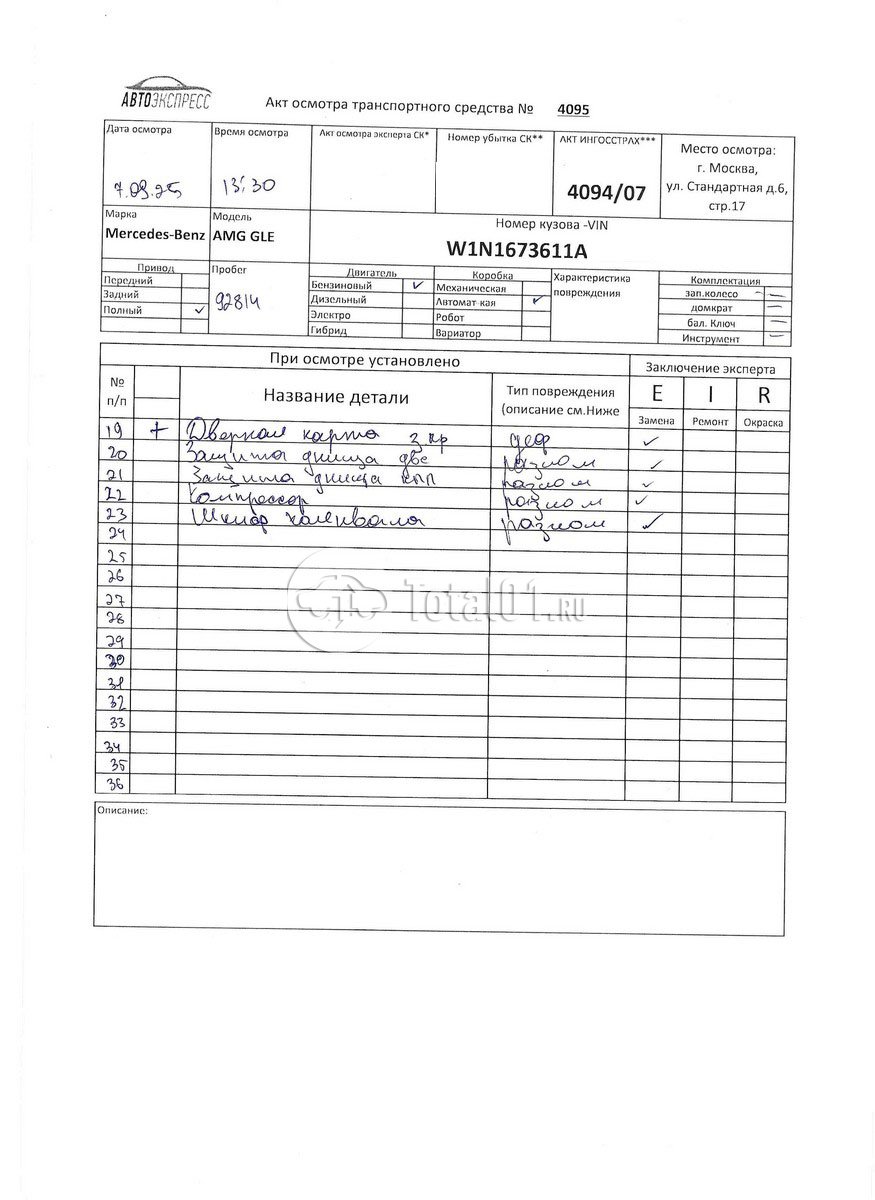 АВТОЭКСПРЕСС
Акт осмотра транспортного средства № 4095
Дата осмотра Время осмотра Акт осмотра эксперта СК* Номер убытка СК** АКТ ИНГОССТРАХ*** Место осмотра:
г. Москва,
7.09.25 13:30 4094/07 ул. Стандартная д.6,
стр.17
Марка Модель Номер кузова -VIN
Mercedes-Benz AMG GLE W1N1673611A
Привод Пробег Двигатель Коробка Характеристика Комплектация
Передний Бензиновый ✓ Механическая повреждения зап.колесо —
Задний 92814 Дизельный Автомат-кая ✓ домкрат —
Полный ✓ Электро Робот бал. Ключ —
Гибрид Вариатор Инструмент —
При осмотре установлено Заключение эксперта
№ п/п Название детали Тип повреждения (описание см.Ниже E I R
Замена Ремонт Окраска
19 + Дверная карта з пр деф ✓
20 Защита днища две разлом ✓
21 Защита днища кпп разлом ✓
22 Компрессор разлом ✓
23 Шкив коленвала разлом ✓
24
25
26
27
28
29
30
31
32
33
34
35
36
Total01.RU
Описание: